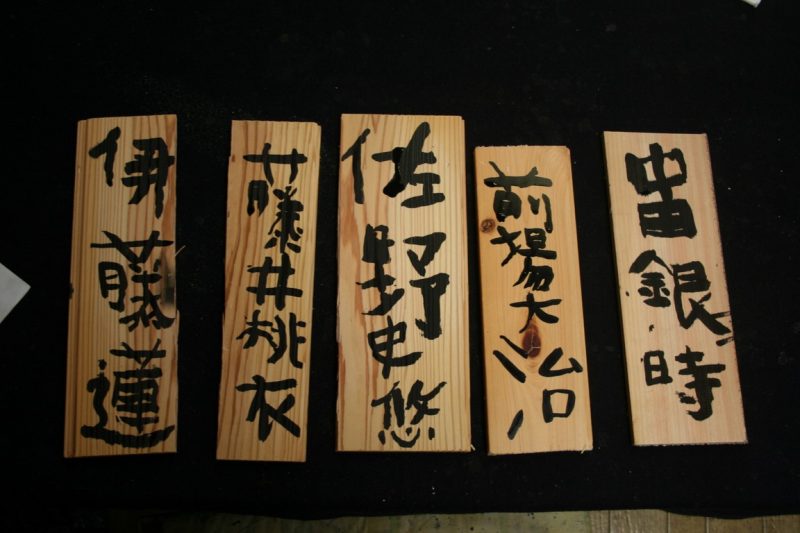 伊藤蓮
藤井桃衣
佐野史悠
前場大治
銀時